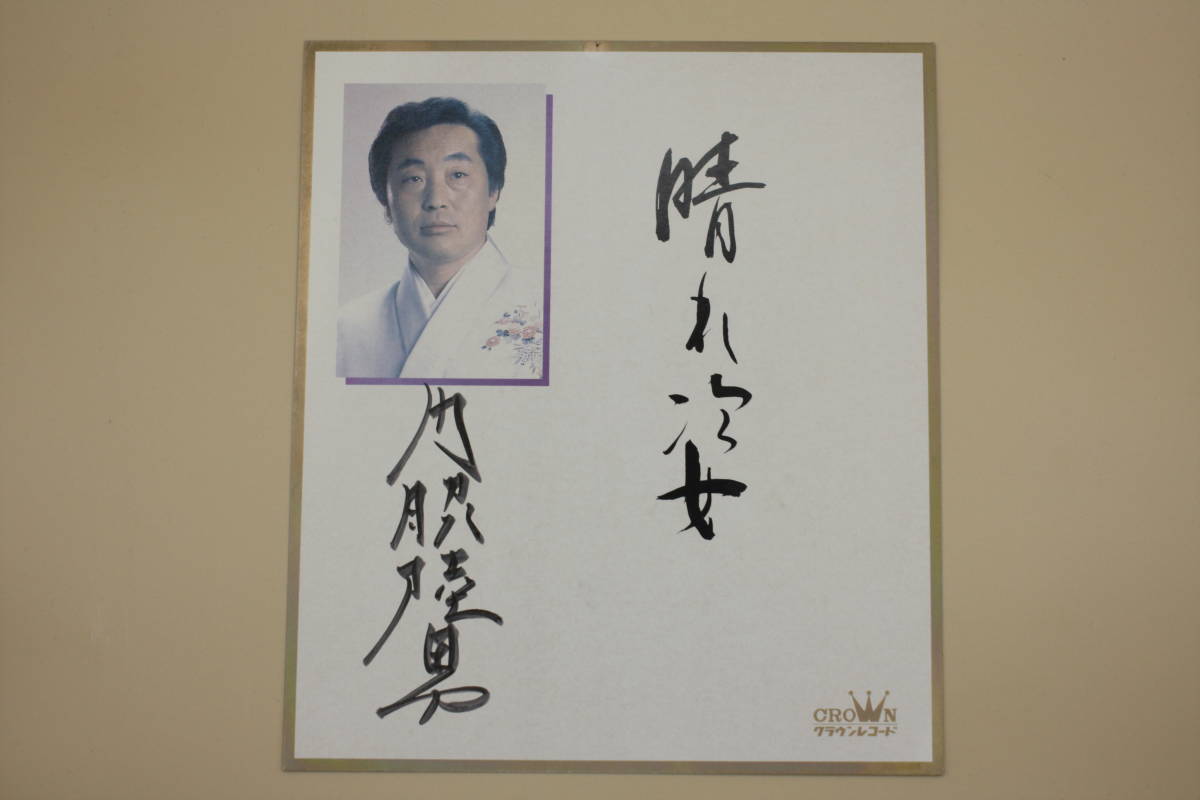 晴れ姿
陸男
CROWN
クラウンレコード